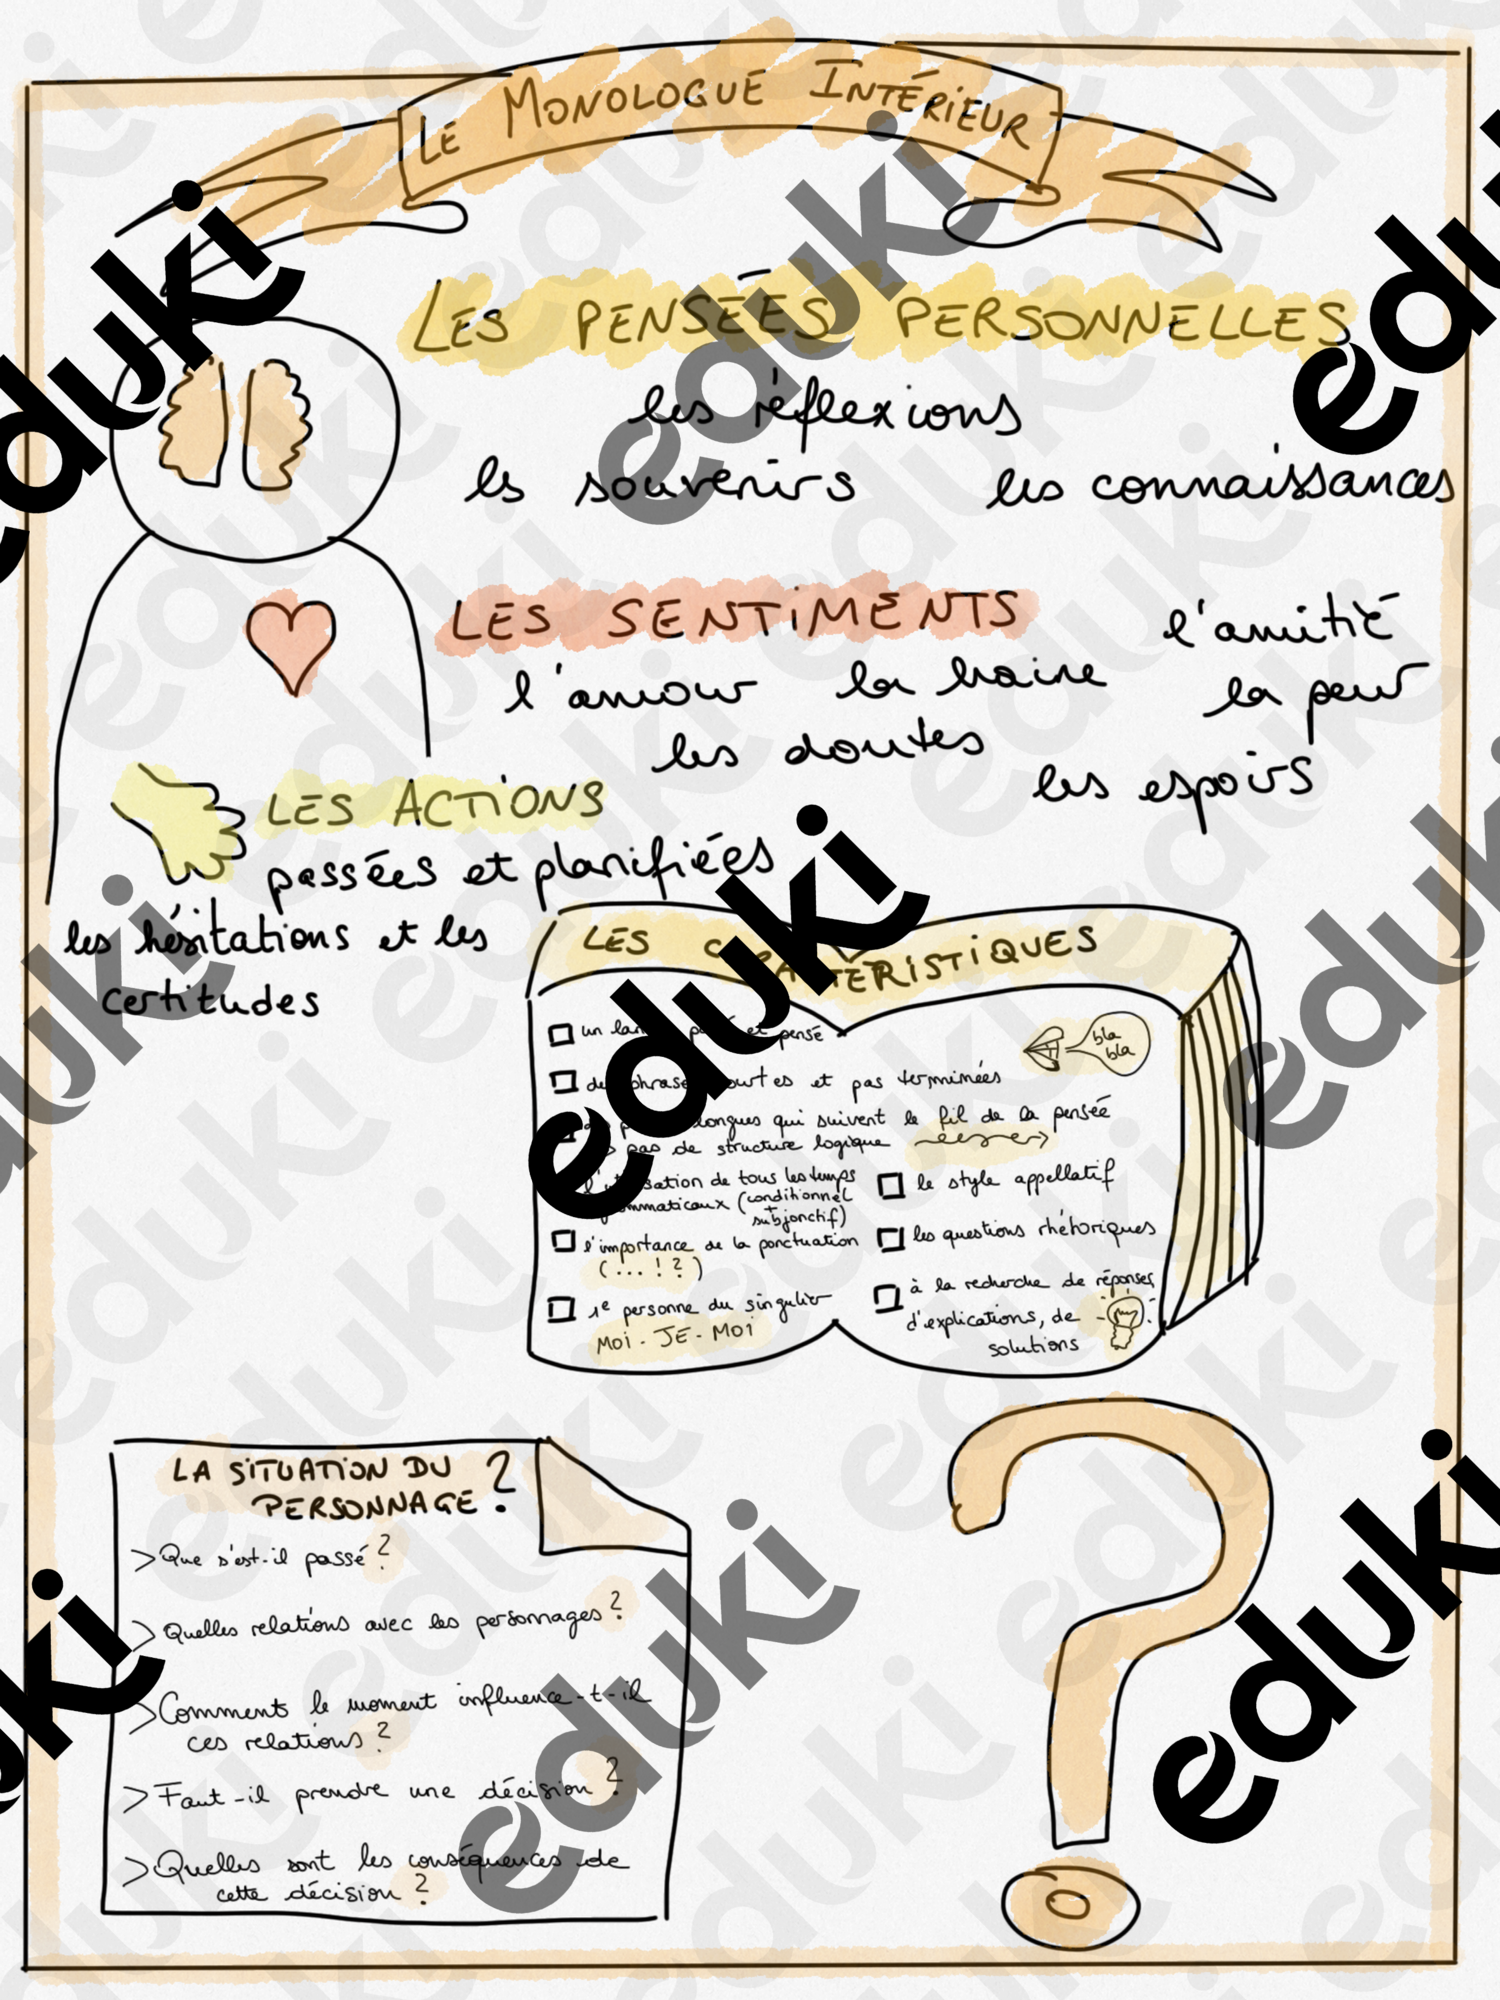 LE MONOLOGUE INTÉRIEUR
LES PENSÉES PERSONNELLES
les réflexions
les souvenirs les connaissances
LES SENTIMENTS
l'amitié
l'amour la haine
la peur
les doutes
les espoirs
LES ACTIONS
passées et planifiées
les hésitations et les
certitudes
LES CARACTÉRISTIQUES
un et pensé
bla
bla
et pas terminées
longues qui suivent le fil de la pensée
pas de structure logique
de tous les temps
(conditionnel
+
subjonctif)
le style appellatif
l'importance de la ponctuation
(... ! ?)
les questions rhétoriques
1e personne du singulier
MOI - JE - MOI
à la recherche de réponses,
d'explications, de
solutions
LA SITUATION DU
PERSONNAGE ?
> Que s'est-il passé ?
> Quelles relations avec les personnages ?
> Comments le moment influence-t-il
ces relations ?
> Faut-il prendre une décision ?
> Quelles sont les conséquences de
cette décision ?
eduki
eduki
eduki
eduki
eduki
eduki
eduki
eduki
eduki